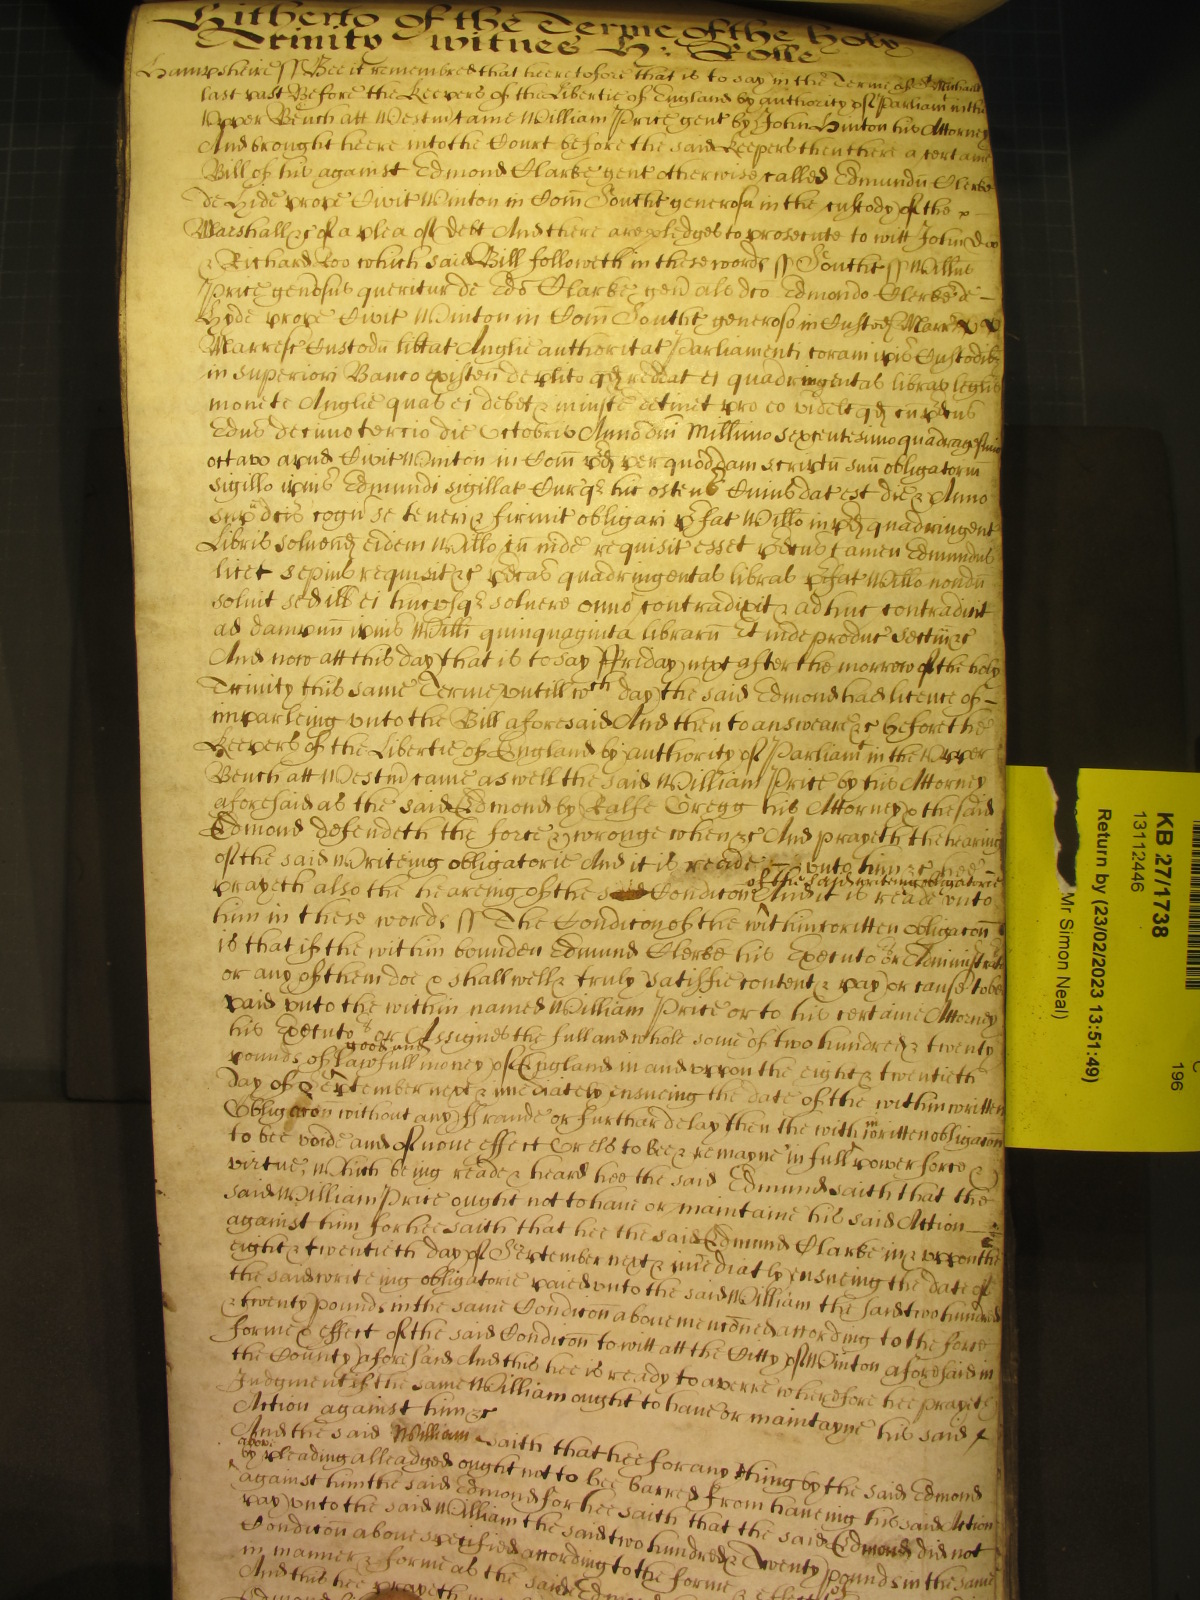 Hitherto of the Terme of the holy
Trinity witnes H: Rolle
Hampsheire ss Bee it remembred that heeretofore that is to say in the Terme of St Michaell
last past Before the Keepers of the Libertie of England by authority of Parliamt in the
Upper Bench att Westm came William Price gent by John Hinton his Attorney
And brought heere into the Court before the said Keepers then there a certaine
Bill of his against Edmond Clarke gent otherwise called Edmundu Clerke
De Hide prope Civit Winton in Com Southt generosu in the custody of the
Marshall &c of a plea of debt And there are pledges to prosecute to witt John Doo
& Richard Roo which said Bill followeth in these words ss Southt ss Willus
Price generosus queritur de Edo Clarke gen als dco Edmondo Clerke de
Hyde prope Civit Winton in Com Southt generoso in Custod Marr
Marresc Custodu libtat Anglie authoritat Parliamenti coram ipis Custodib
in superiori Banco existen de plito qd reddat ei quadringentas libras leglis
monete Anglie quas ei debet & iniuste detinet pro eo videlt qd cu pdcus
Edus decimo tercio die Octobris Anno dni Millimo sexcentesimo quadragesimo
octavo apud Civit Winton in Com pd per quoddam scriptu suu obligatoriu
sigillo ipius Edmundi sigillat Curq hic ostens cuius dat est die & Anno
supdcis cogn se teneri & firmit obligari pfat Willo in pd quadringent
Libris solvend eidem Willo cu inde requisit esset pdcus tamen Edmundus
licet sepius requisit &c pdcas quadringentas libras pfat Willo nondu
solvit sed ill ei hucusq solvere omno contradixit & adhuc contradicit
ad dampnu ipius Willi quinquaginta libraru Et inde producit sectam &c
And now att this day that is to say ffriday next after the morrow of the holy
Trinity this same Terme untill wch day the said Edmond had licence of
imparleing unto the Bill aforesaid And then to answeare &c before the
Keepers of the Libertie of England by authority of Parliamt in the Upper
Bench att Westm came as well the said William Price by his Attorney
aforesaid as the said Edmond by Ralfe Gregg his Attorney & the said
Edmond defendeth the force & wronge when &c And prayeth the hearing
of the said Writeing obligatorie And it is reade unto him &c hee
prayeth also the heareing of the Condicon of the said writeing obligatorie And it is reade unto
him in these words ss The Condicon of the within written obligacon
is that if the within bounden Edmund Clerke his Executors or Administrators
or any of them doe & shall well & truly satisfie content & pay or cause to be
paid unto the within named William Price or to his certaine Attorney
his Executors or Assignes the full and whole some of two hundred & twenty
pounds of good and lawfull money of England in and uppon the eight & twentieth
day of September next & imediately ensueing the date of the within written
Obligacon without any ffraude or further delay then the within written obligacon
to bee voide and of none effect Or els to bee & remayne in full power force &
virtue, Which being reade & heard hee the said Edmund saith that the
said William Price ought not to have or maintaine his said Action
against him for hee saith that hee the said Edmund Clarke in & uppon the
eight & twentieth day of September next & imediatly ensueing the date of
the said writeing obligatorie paied unto the said William the said two hundred
& twenty pounds in the same Condicon above menconed according to the force
forme & effect of the said Condicon to witt att the Citty of Winton aforesaid in
the County aforesaid And this hee is ready to averre wherefore hee prayeth
Judgment if the same William ought to have or maintayne his said
Action against him &c
And the said William saith that hee for any thing by the said Edmond
above by pleading alleadged ought not to bee barred from haveing his said Action
against him the said Edmond for hee saith that the said Edmond did not
pay unto the said William the said two hundred & Twenty pounds in the same
Condicon above specified according to the forme & effect of
in manner & forme as the said Edmond
And this hee prayeth
KB 27/1738
13112446
Return by (23/02/2023 13:51:49)
Mr Simon Neal)
196